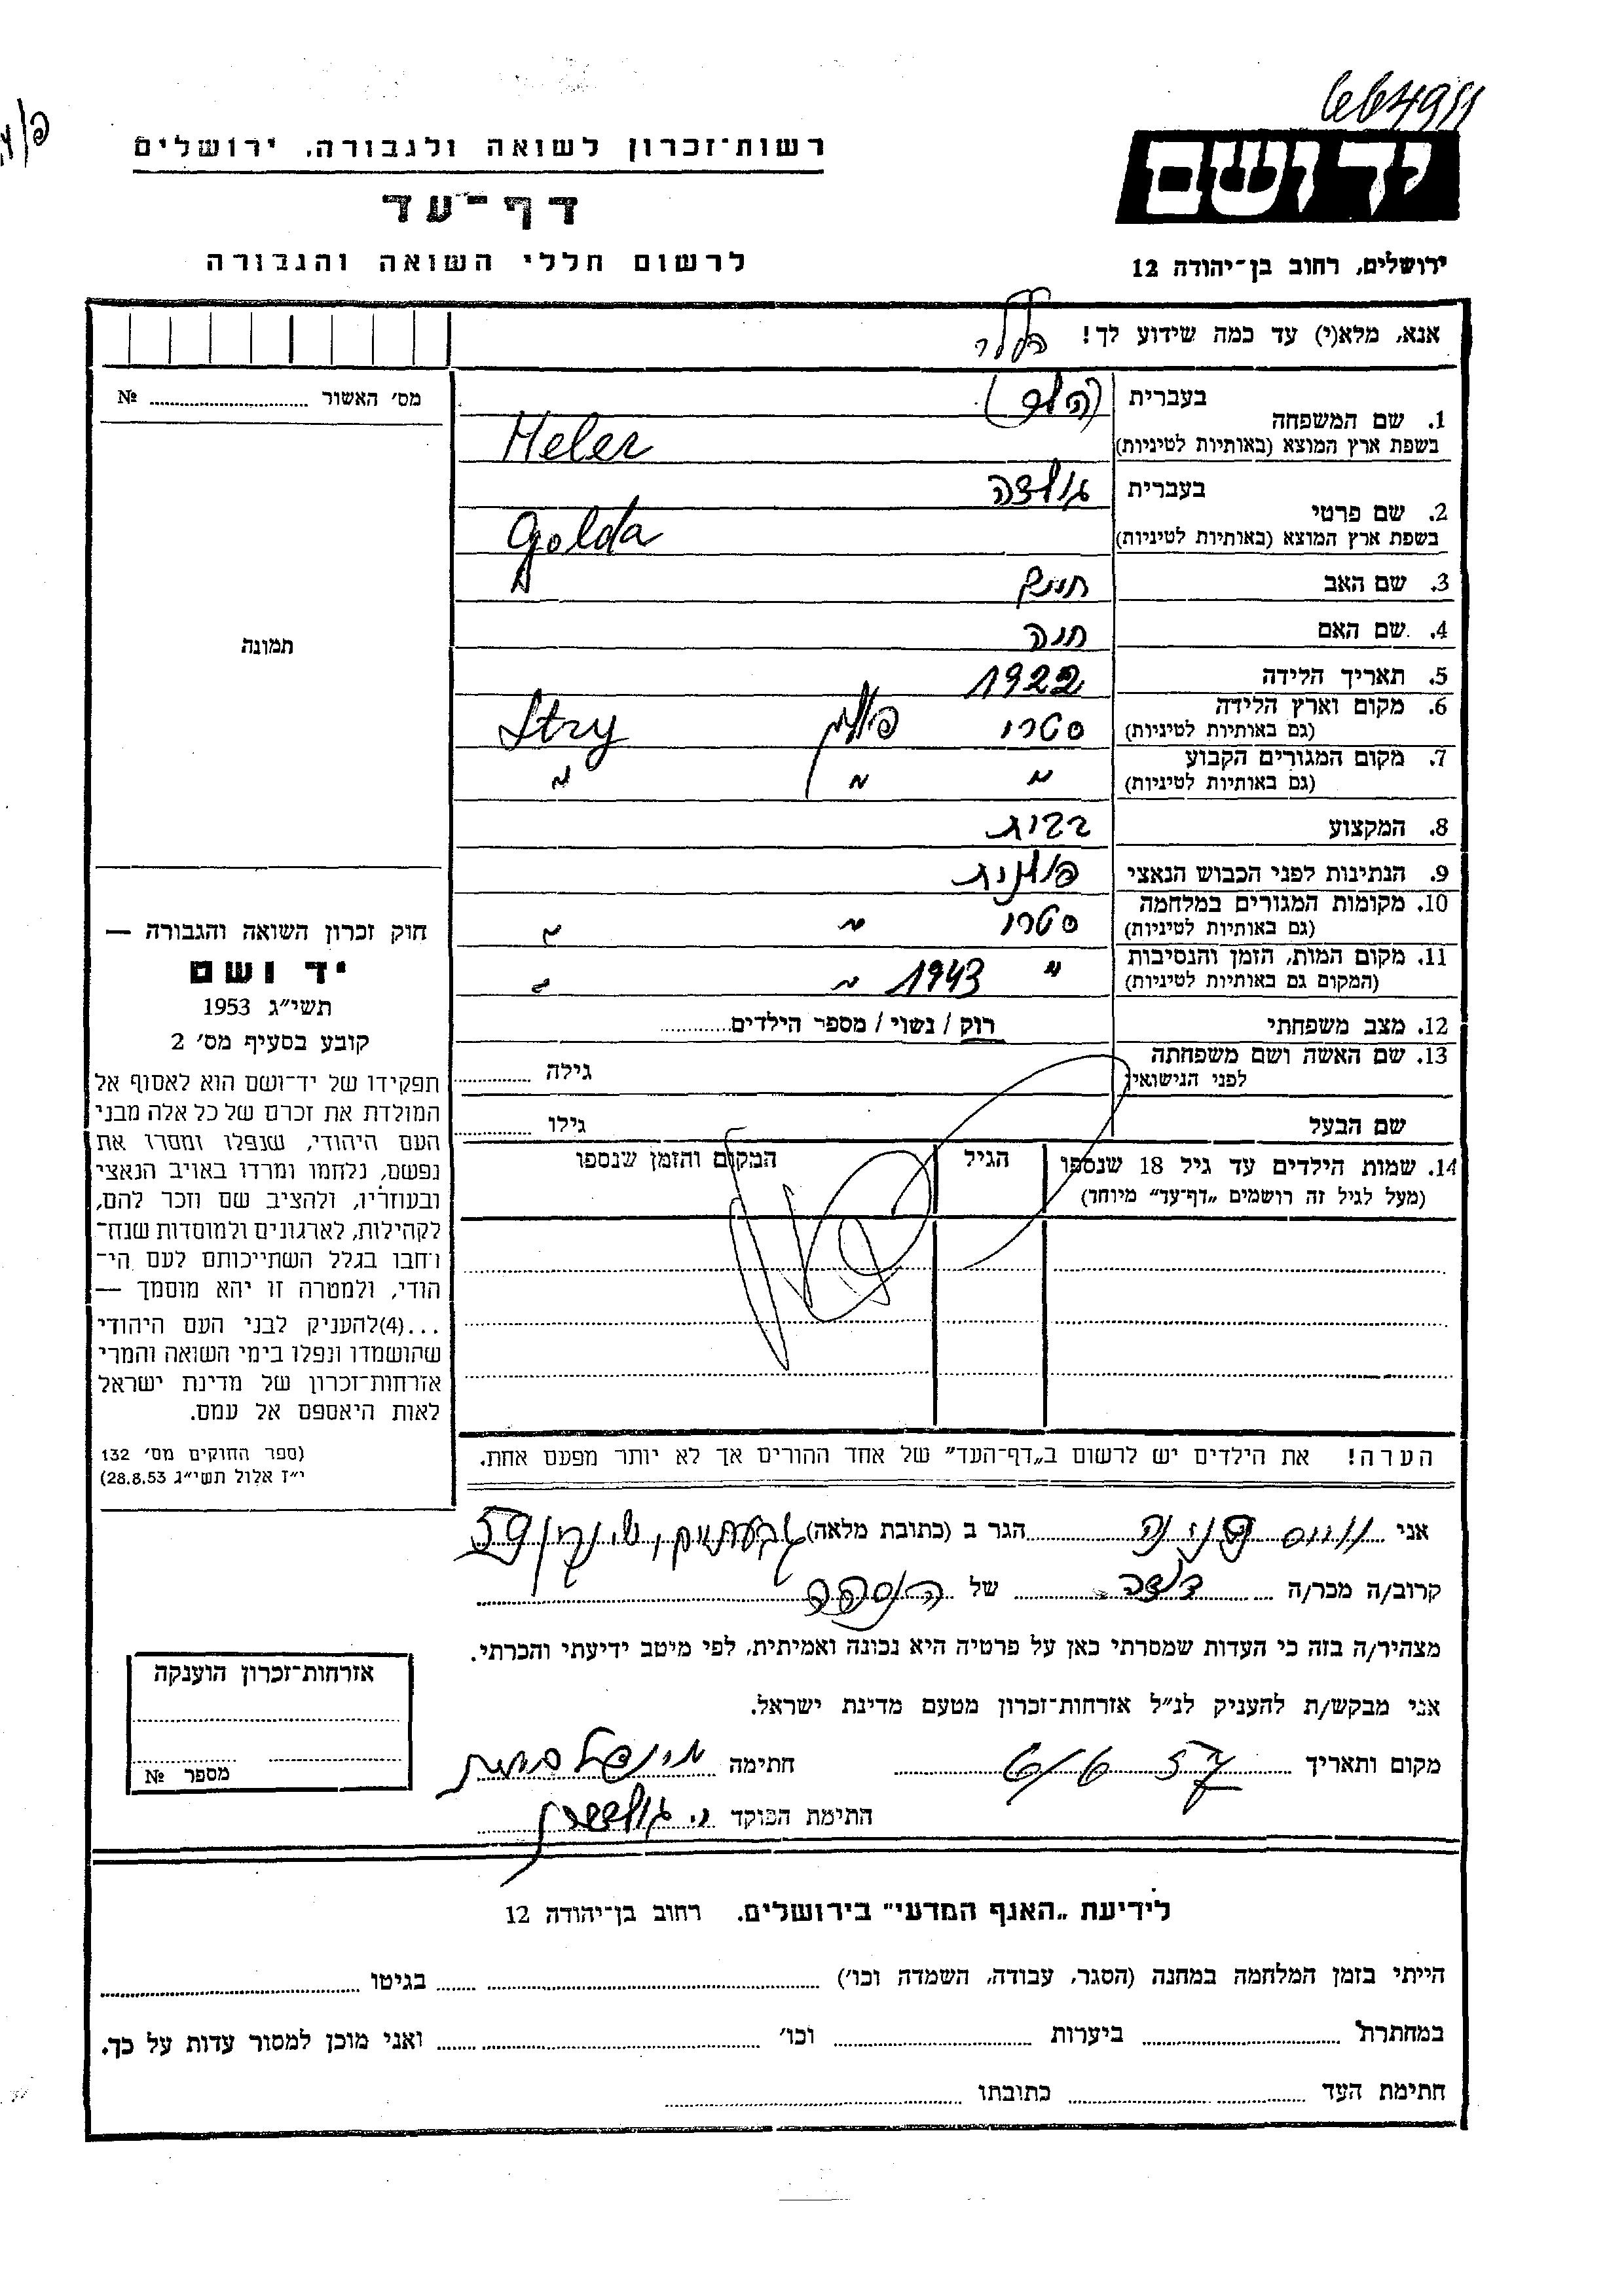 664911
רשות־זכרון לשואה ולגבורה, ירושלים
יד ושם
דף־עד
לרשום חללי השואה והגבורה
ירושלים, רחוב בן־יהודה 12
אנא, מלא(י) עד כמה שידוע לך!
הלר
מס׳ האשור № ........
1. שם המשפחה בעברית (הלר)
בשפת ארץ המוצא (באותיות לטיניות) Heler
2. שם פרטי בעברית גולדה
בשפת ארץ המוצא (באותיות לטיניות) Golda
3. שם האב חיים
4. שם האם חנה
תמונה
5. תאריך הלידה 1922
6. מקום וארץ הלידה (גם באותיות לטיניות) סטרי פולין Stry
7. מקום המגורים הקבוע (גם באותיות לטיניות) " " "
8. המקצוע
9. הנתינות לפני הכבוש הנאצי פולנית
10. מקומות המגורים במלחמה (גם באותיות לטיניות) סטרי " "
11. מקום המות, הזמן והנסיבות (המקום גם באותיות לטיניות) " 1943 " "
12. מצב משפחתי רוק / נשוי / מספר הילדים........
13. שם האשה ושם משפחתה לפני הנישואין גילה ........
שם הבעל גילו ........
14. שמות הילדים עד גיל 18 שנספו (מעל לגיל זה רושמים „דף־עד״ מיוחד) הגיל המקום והזמן שנספו
חוק זכרון השואה והגבורה —
יד ושם
תשי״ג 1953
קובע בסעיף מס׳ 2
תפקידו של יד־ושם הוא לאסוף אל
המולדת את זכרם של כל אלה מבני
העם היהודי, שנפלו ומסרו את
נפשם, נלחמו ומרדו באויב הנאצי
ובעוזריו, ולהציב שם וזכר להם,
לקהילות, לארגונים ולמוסדות שנח־
רחבו בגלל השתייכותם לעם הי־
הודי, ולמטרה זו יהא מוסמך —
...(4)להעניק לבני העם היהודי
שהושמדו ונפלו בימי השואה והמרי
אזרחות־זכרון של מדינת ישראל
לאות היאספם אל עמם.
(ספר החוקים מס׳ 132
י״ז אלול תשי״ג 28.8.53)
הערה! את הילדים יש לרשום ב„דף־העד״ של אחד ההורים אך לא יותר מפעם אחת.
אני ........ הגר ב (כתובת מלאה) גבעתיים, 59
קרוב/ה מכר/ה דודה של הנספה
מצהיר/ה בזה כי העדות שמסרתי כאן על פרטיה היא נכונה ואמיתית, לפי מיטב ידיעתי והכרתי.
אני מבקש/ת להעניק לנ״ל אזרחות־זכרון מטעם מדינת ישראל.
מקום ותאריך ........ חתימה ........
חתימת הפוקד ........
אזרחות־זכרון הוענקה
מספר №
לידיעת „האגף המדעי״ בירושלים. רחוב בן־יהודה 12
הייתי בזמן המלחמה במחנה (הסגר, עבודה, השמדה וכו׳) ........ בגיטו ........
במחתרת ........ ביערות ........ וכו׳ ........ ואני מוכן למסור עדות על כך.
חתימת העד ........ כתובתו ........